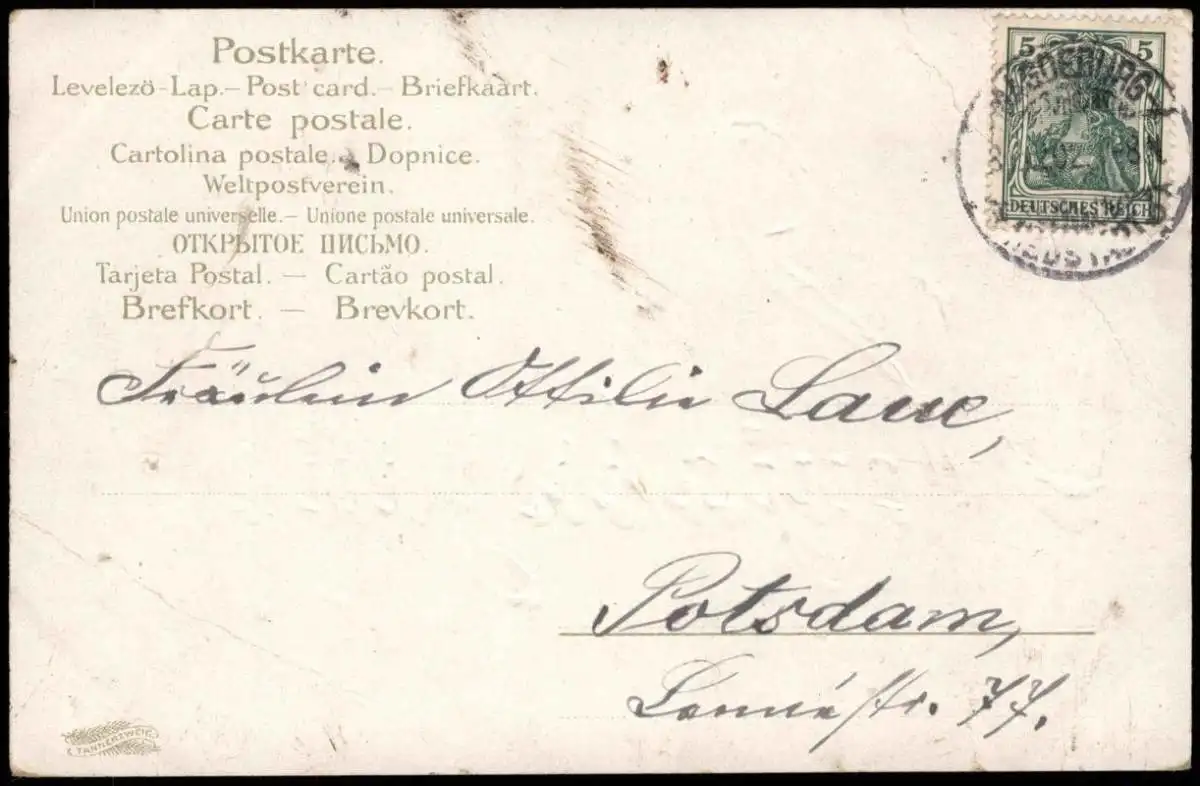 Postkarte.
Levelező-Lap.– Post card.– Briefkaart.
Carte postale.
Cartolina postale. Dopnice.
Weltpostverein.
Union postale universelle.– Unione postale universale.
ОТКРЫТОЕ ПИСЬМО.
Tarjeta Postal. — Cartão postal.
Brefkort. — Brevkort.
5 5
DEUTSCHES REICH
MAGDEBURG
Fräulein Ottilie Laue,
Potsdam,
Lennéstr. 77.
TANNENZWEIG